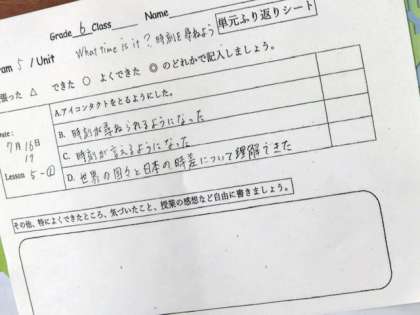 Grade 6 Class Name
単元ふり返りシート
5 / Unit What time is it? 時刻を尋ねよう
張った △ できた ○ よくできた ◎ のどれかで記入しましょう。
A.アイコンタクトをとるようにした。
B. 時刻が尋ねられるようになった
C. 時刻が言えるようになった
D. 世界の国々と日本の時差について理解できた
7月16日
19
Lesson 5-①
その他、特によくできたところ、気づいたこと、授業の感想など自由に書きましょう。